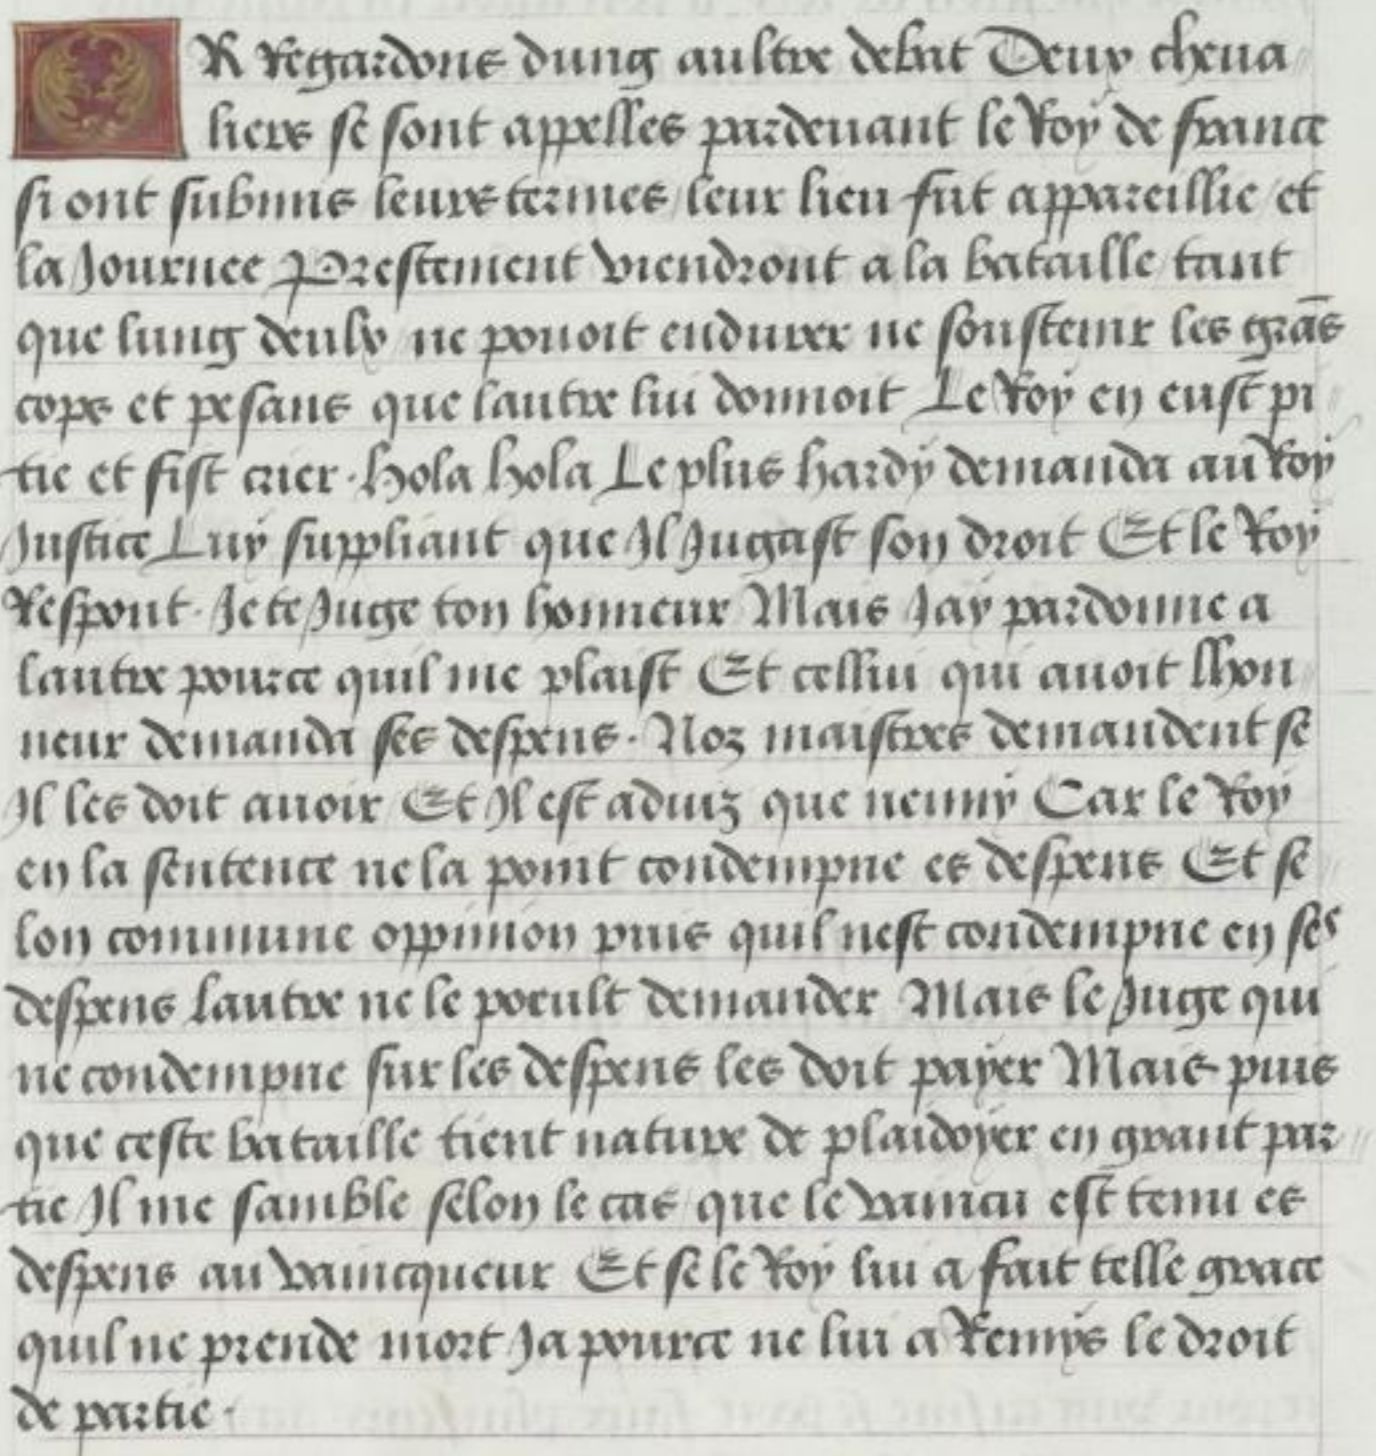 OR Regardons dung aultre debat Deux cheua
liers se sont appelles pardeuant le Roy de france
si ont leurs termes leur lieu fut appareillie et
la Journee Prestement viendront a la bataille tant
que lung deulx ne pouoit endurer ne soustenir les grās
cops et pesans que lautre lui donnoit Le Roy en eust pi
tie et fist crier. hola hola Le plus hardy demanda au Roy
Justice Luy suppliant que Il Jugast son droit Et le Roy
Respont. Je te Juge ton honneur Mais Jay pardonne a
lautre pource quil me plaist Et cellui qui auoit lhon
neur demanda ses despens. Noz maistres demandent se
Il les doit auoir Et Il est aduiz que nenny Car le Roy
en la sentence ne la point condempne es despens Et se
lon commune oppinion puis quil nest condempne en ses
despens lautre ne le poeult demander Mais le Juge qui
ne condempne sur les despens les doit payer Mais puis
que ceste bataille tient nature de plaidoyer en grant par
tie Il me samble selon le cas que le vaincu est tenu es
despens au vaincqueur Et se le Roy lui a fait telle grace
quil ne prende mort Ja pource ne lui a Remys le droit
de partie.